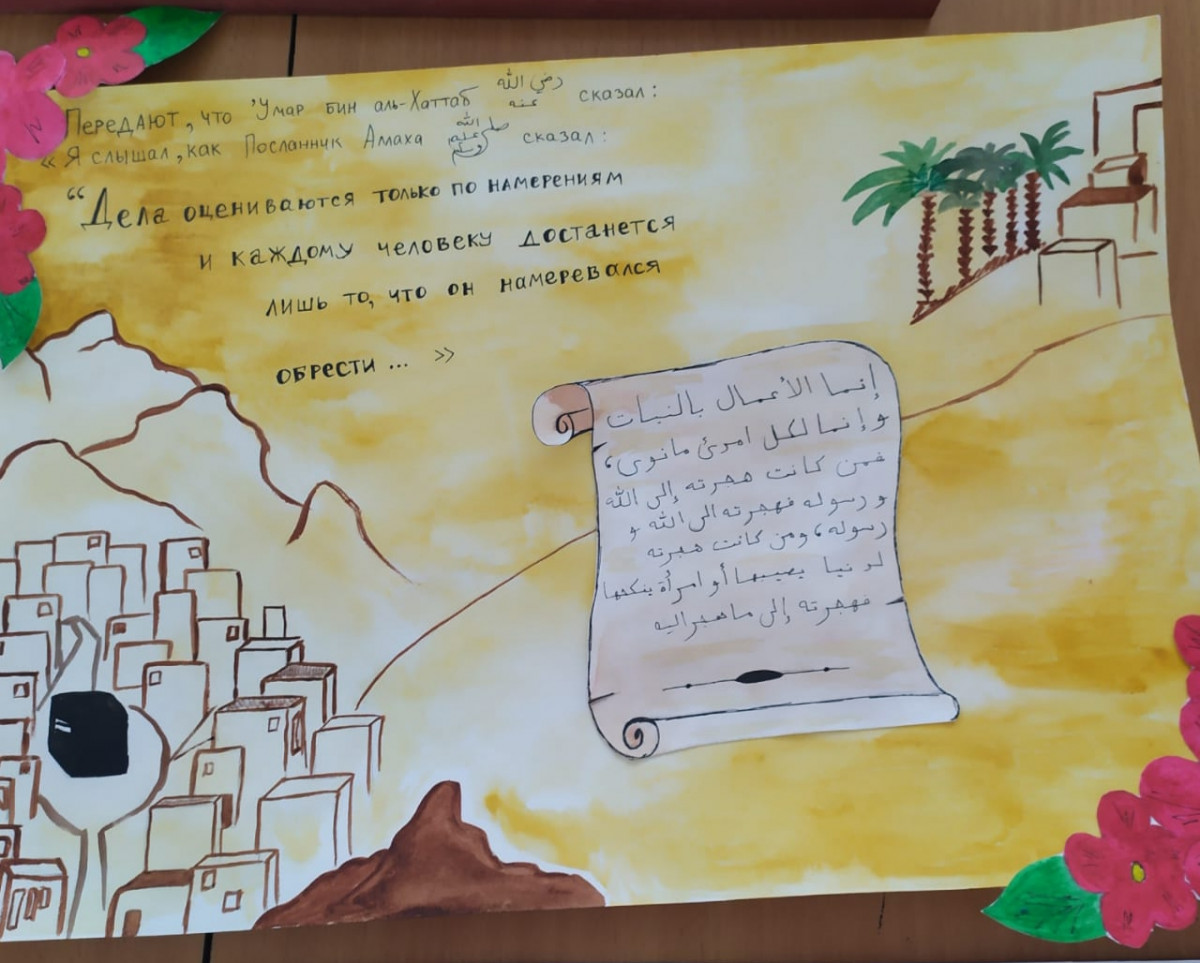 Передают, что 'Умар бин аль-Хаттаб رضي الله عنه сказал:
« Я слышал, как Посланник Амаха صلى الله عليه وسلم сказал:
“Дела оцениваются только по намерениям
и каждому человеку достанется
лишь то, что он намеревался
обрести ... »
إنما الأعمال بالنيات
وإنما لكل امرئ مانوى،
فمن كانت هجرته إلى الله
ورسوله فهجرته الى الله و
رسوله، ومن كانت هجرته
لدنيا يصيبها أو امرأة ينكحها
فهجرته إلى ماهجراليه